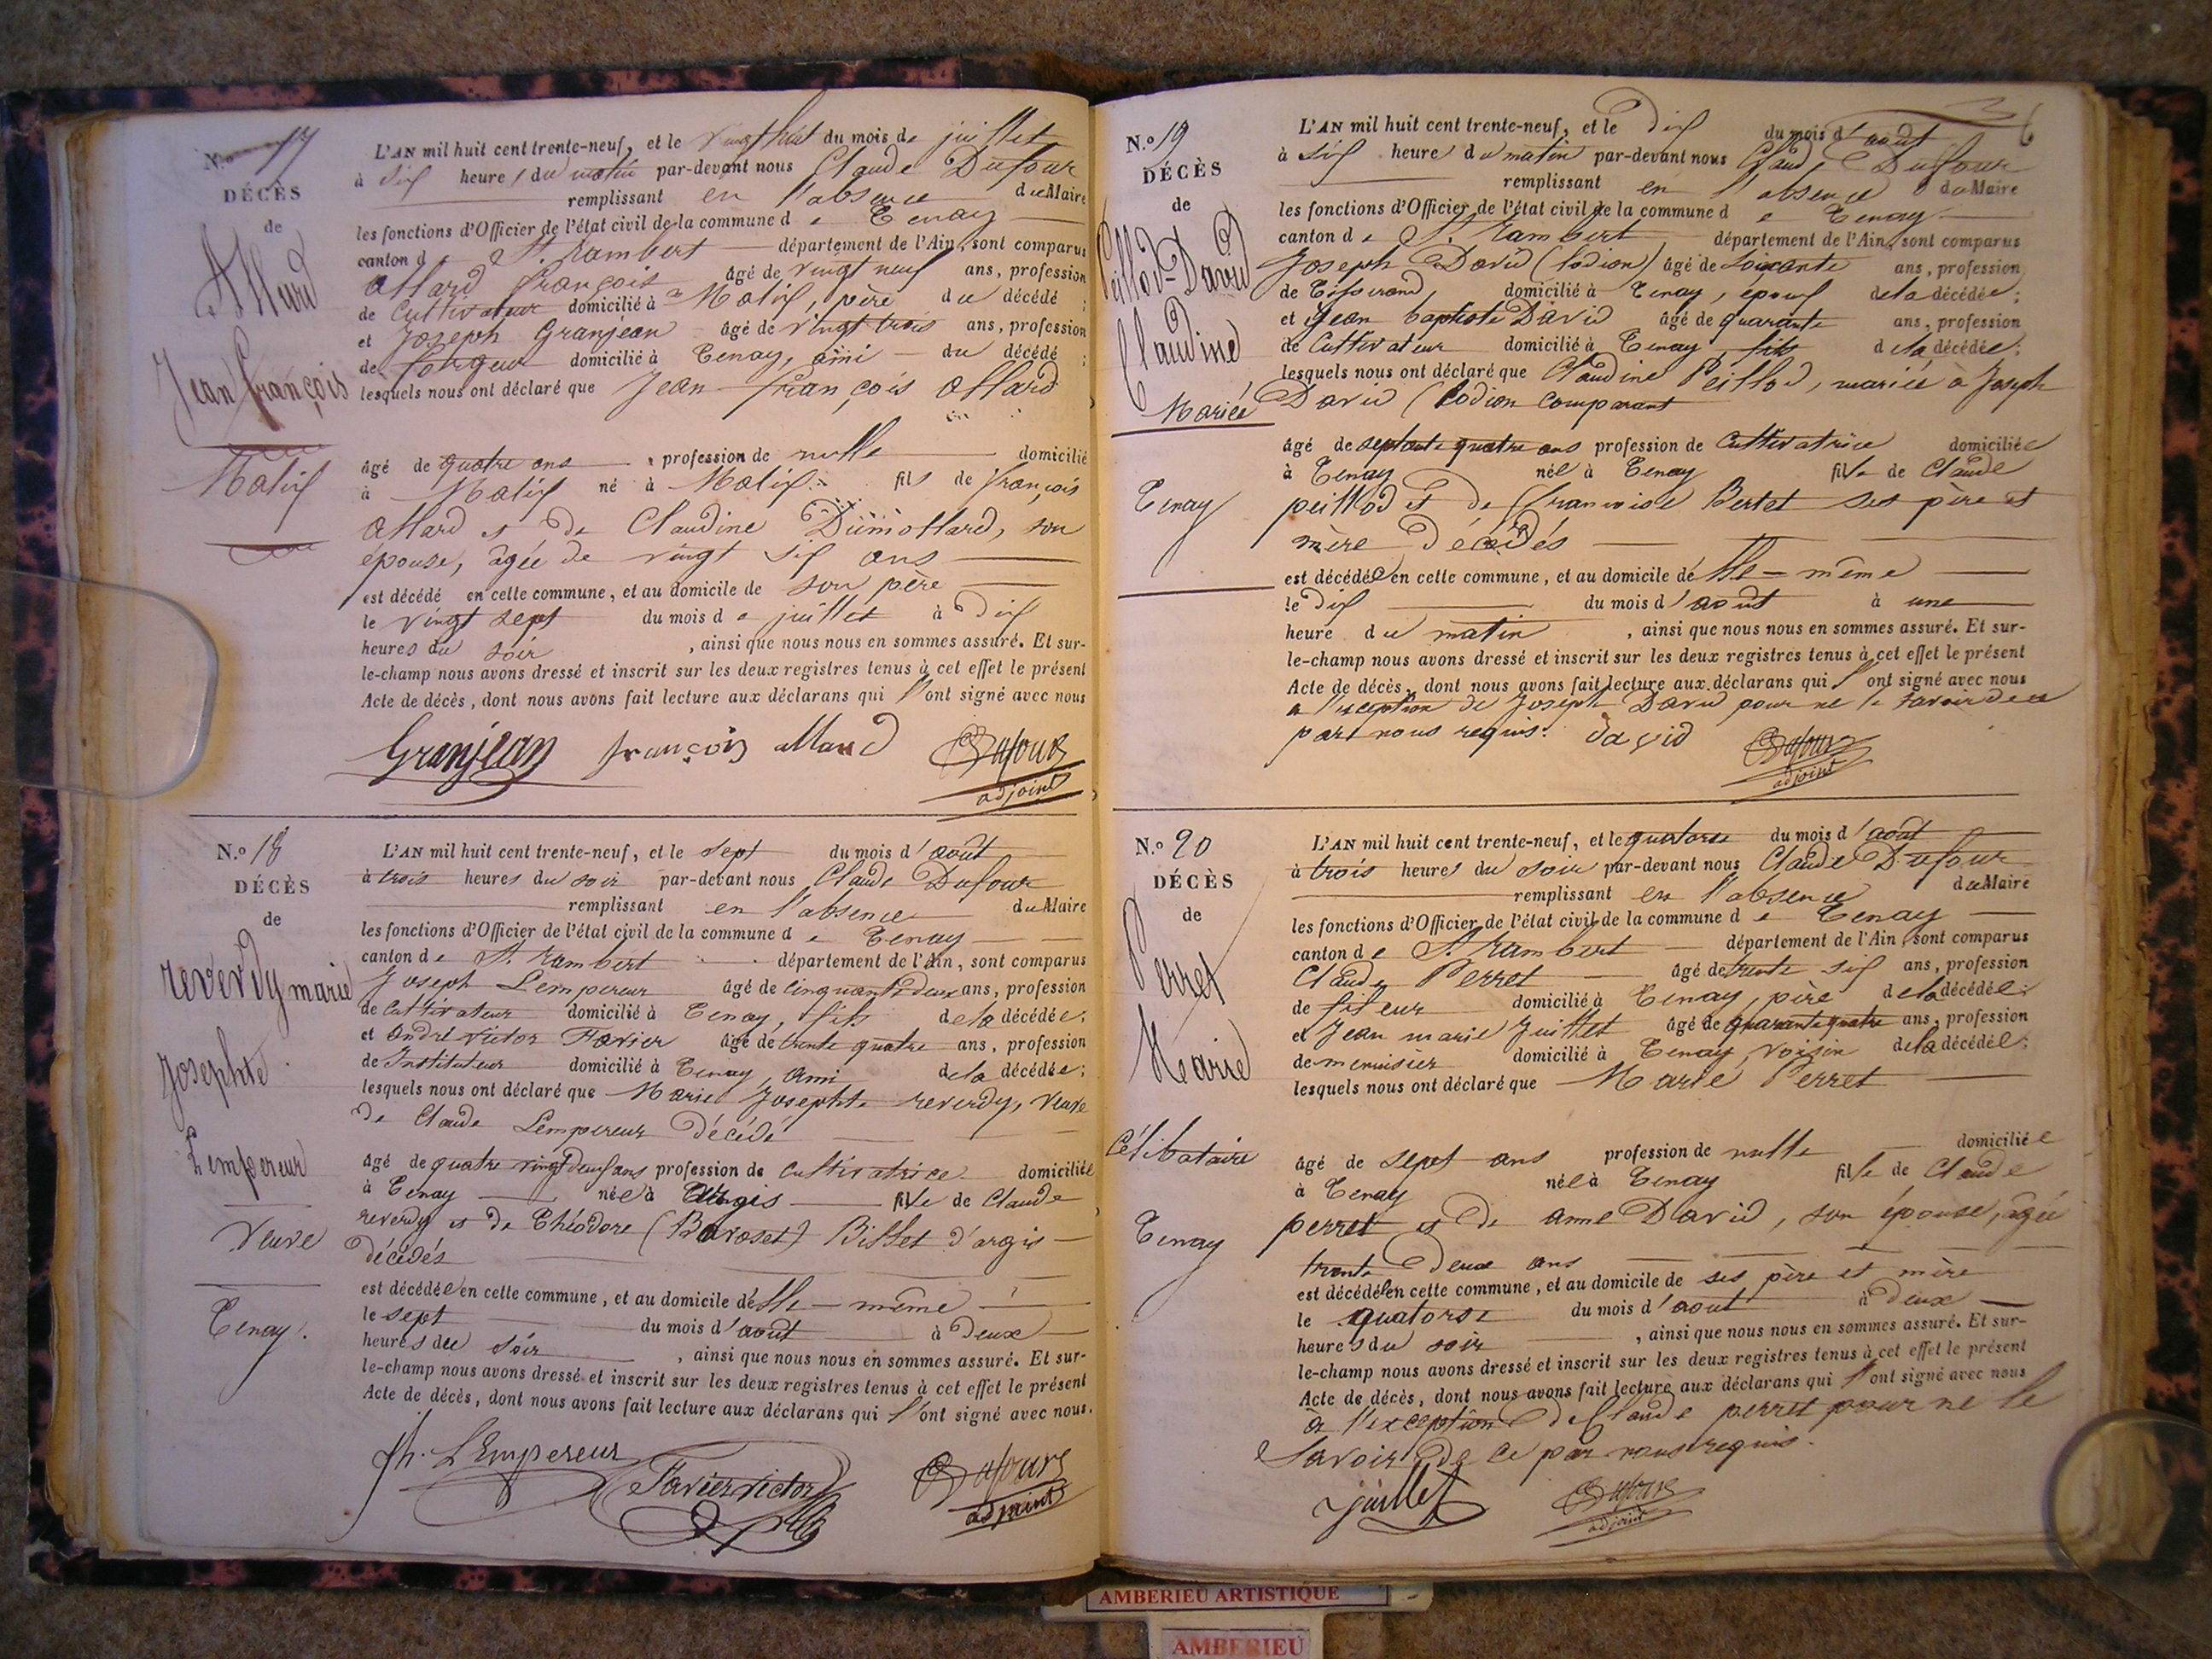 N.o 17
DÉCÈS
de
Allard
Jean François
Malix
L'AN mil huit cent trente-neuf, et le vingt huit du mois de juillet
à six heures du matin par-devant nous Claude Dufour
remplissant en l'absence du Maire
les fonctions d'Officier de l'état civil de la commune de Tenay
canton de St. Rambert département de l'Ain, sont comparus
Allard François âgé de vingt neuf ans, profession
de Cultivateur domicilié à Malix, père du décédé ;
et Joseph Granjean âgé de vingt trois ans, profession
de domicilié à Tenay, ami du décédé ;
lesquels nous ont déclaré que Jean François Allard
âgé de quatre ans, profession de nulle domicilié
à Malix né à Malix fils de François
Allard et de Claudine Dumollard, son
épouse, âgée de vingt six ans
est décédé en cette commune, et au domicile de son père
le vingt sept du mois de juillet à dix
heures du soir, ainsi que nous nous en sommes assuré. Et sur-
le-champ nous avons dressé et inscrit sur les deux registres tenus à cet effet le présent
Acte de décès, dont nous avons fait lecture aux déclarans qui l'ont signé avec nous
Granjean françois allard Dufour
adjoint
N.o 18
DÉCÈS
de
reverdy marie
Josephte
Lempereur
Veuve
Tenay.
L'AN mil huit cent trente-neuf, et le sept du mois d'août
à trois heures du soir par-devant nous Claude Dufour
remplissant en l'absence du Maire
les fonctions d'Officier de l'état civil de la commune de Tenay
canton de St. Rambert département de l'Ain, sont comparus
Joseph Lempereur âgé de cinquante deux ans, profession
de Cultivateur domicilié à Tenay, fils de la décédée;
et André Victor Favier âgé de trente quatre ans, profession
de Instituteur domicilié à Tenay, ami de la décédée;
lesquels nous ont déclaré que Marie Josephte reverdy, veuve
de Claude Lempereur décédé
âgé de quatre vingt deux ans profession de cultivatrice domiciliée
à Tenay née à Argis fille de Claude
reverdy et de Théodore (Bavoset) Billet d'argis
décédés
est décédée en cette commune, et au domicile d'elle-même
le sept du mois d'août à deux
heures du soir, ainsi que nous nous en sommes assuré. Et sur-
le-champ nous avons dressé et inscrit sur les deux registres tenus à cet effet le présent
Acte de décès, dont nous avons fait lecture aux déclarans qui l'ont signé avec nous.
Jh. LEmpereur Favier victor Dufour
adjoint
N.o 19
DÉCÈS
de
Peillod-David
Claudine
Mariée
Tenay
L'AN mil huit cent trente-neuf, et le dix du mois d'août
à six heure du matin par-devant nous Claude Dufour
remplissant en l'absence du Maire
les fonctions d'Officier de l'état civil de la commune de Tenay
canton de St. Rambert département de l'Ain, sont comparus
Joseph David (Codion) âgé de soixante ans, profession
de Tisserand, domicilié à Tenay, époux de la décédée;
et Jean baptiste David âgé de quarante ans, profession
de Cultivateur domicilié à Tenay, fils de la décédée;
lesquels nous ont déclaré que Claudine Peillod, mariée à Joseph
David (Codion comparant
âgé de septante quatre ans profession de Cultivatrice domiciliée
à Tenay née à Tenay fille de Claude
peillod et de françoise Bertet ses père et
mère décédés
est décédée en cette commune, et au domicile d'elle-même
le dix du mois d'août à une
heure du matin, ainsi que nous nous en sommes assuré. Et sur-
le-champ nous avons dressé et inscrit sur les deux registres tenus à cet effet le présent
Acte de décès, dont nous avons fait lecture aux déclarans qui l'ont signé avec nous
a l'exception de Joseph David pour ne le savoir de ce
par nous requis. david Dufour
adjoint
N.o 20
DÉCÈS
de
Perret
Marie
Célibataire
Tenay
L'AN mil huit cent trente-neuf, et le quatorse du mois d'août
à trois heures du soir par-devant nous Claude Dufour
remplissant en l'absence du Maire
les fonctions d'Officier de l'état civil de la commune de Tenay
canton de St. Rambert département de l'Ain, sont comparus
Claude Perret âgé de trente six ans, profession
de fileur domicilié à Tenay, père de la décédée;
et Jean marie Juillet âgé de quarante quatre ans, profession
de menuisier domicilié à Tenay, voisin de la décédée;
lesquels nous ont déclaré que Marie Perret
âgé de sept ans profession de nulle domiciliée
à Tenay née à Tenay fille de Claude
perret et de anne David, son épouse, agée
trente deux ans
est décédée en cette commune, et au domicile de ses père et mère
le quatorse du mois d'aout à deux
heures du soir, ainsi que nous nous en sommes assuré. Et sur-
le-champ nous avons dressé et inscrit sur les deux registres tenus à cet effet le présent
Acte de décès, dont nous avons fait lecture aux déclarans qui l'ont signé avec nous
à l'exception de Claude perret pour ne le
Savoir de ce par nous requis.
juillet Dufour
adjoint
AMBERIEU ARTISTIQUE
AMBERIEU